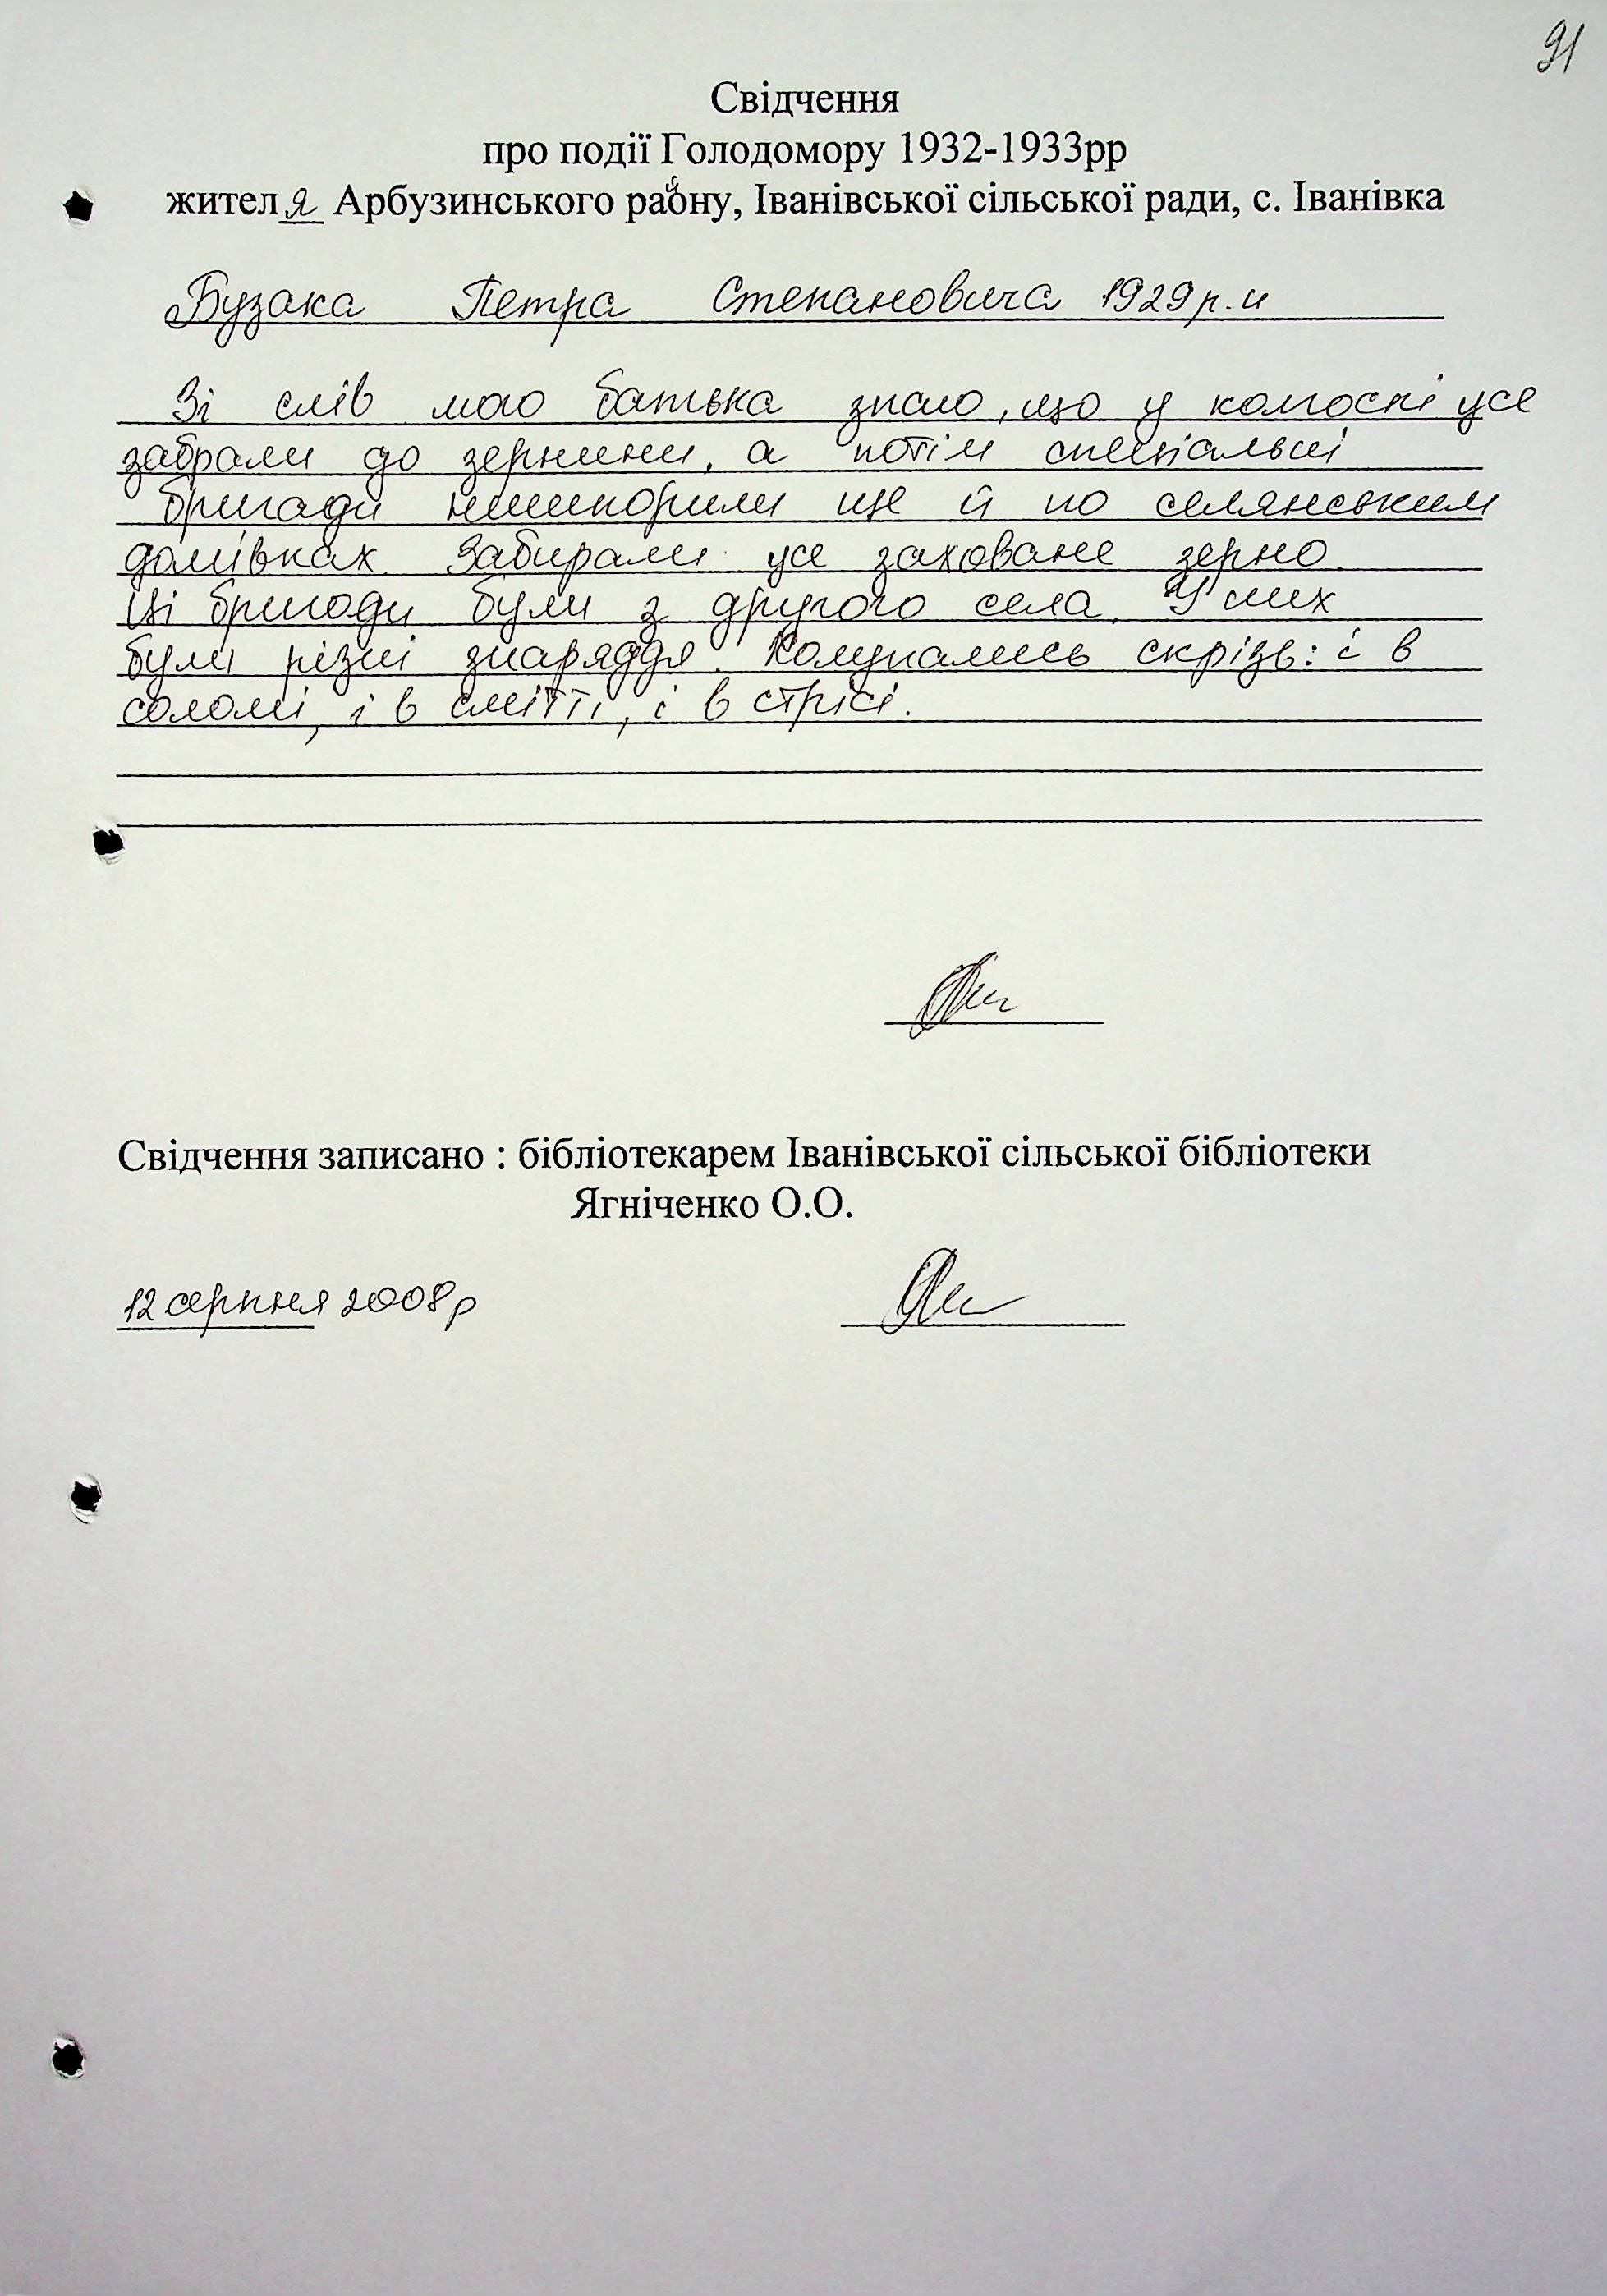 91
Свідчення
про події Голодомору 1932-1933рр
жителя Арбузинського району, Іванівської сільської ради, с. Іванівка
Бузака Петра Степановича 1929р.н
Зі слів мого батька знаю, що у колгоспі усе
забрали до зернини, а потім спеціальні
бригади нишпорили ще й по селянським
домівках. Забирали усе заховане зерно.
Ці бригади були з другого села. У них
були різні знаряддя. Колупались скрізь: і в
соломі, і в смітті, і в стрісі.
Свідчення записано : бібліотекарем Іванівської сільської бібліотеки
Ягніченко О.О.
12 серпня 2008р